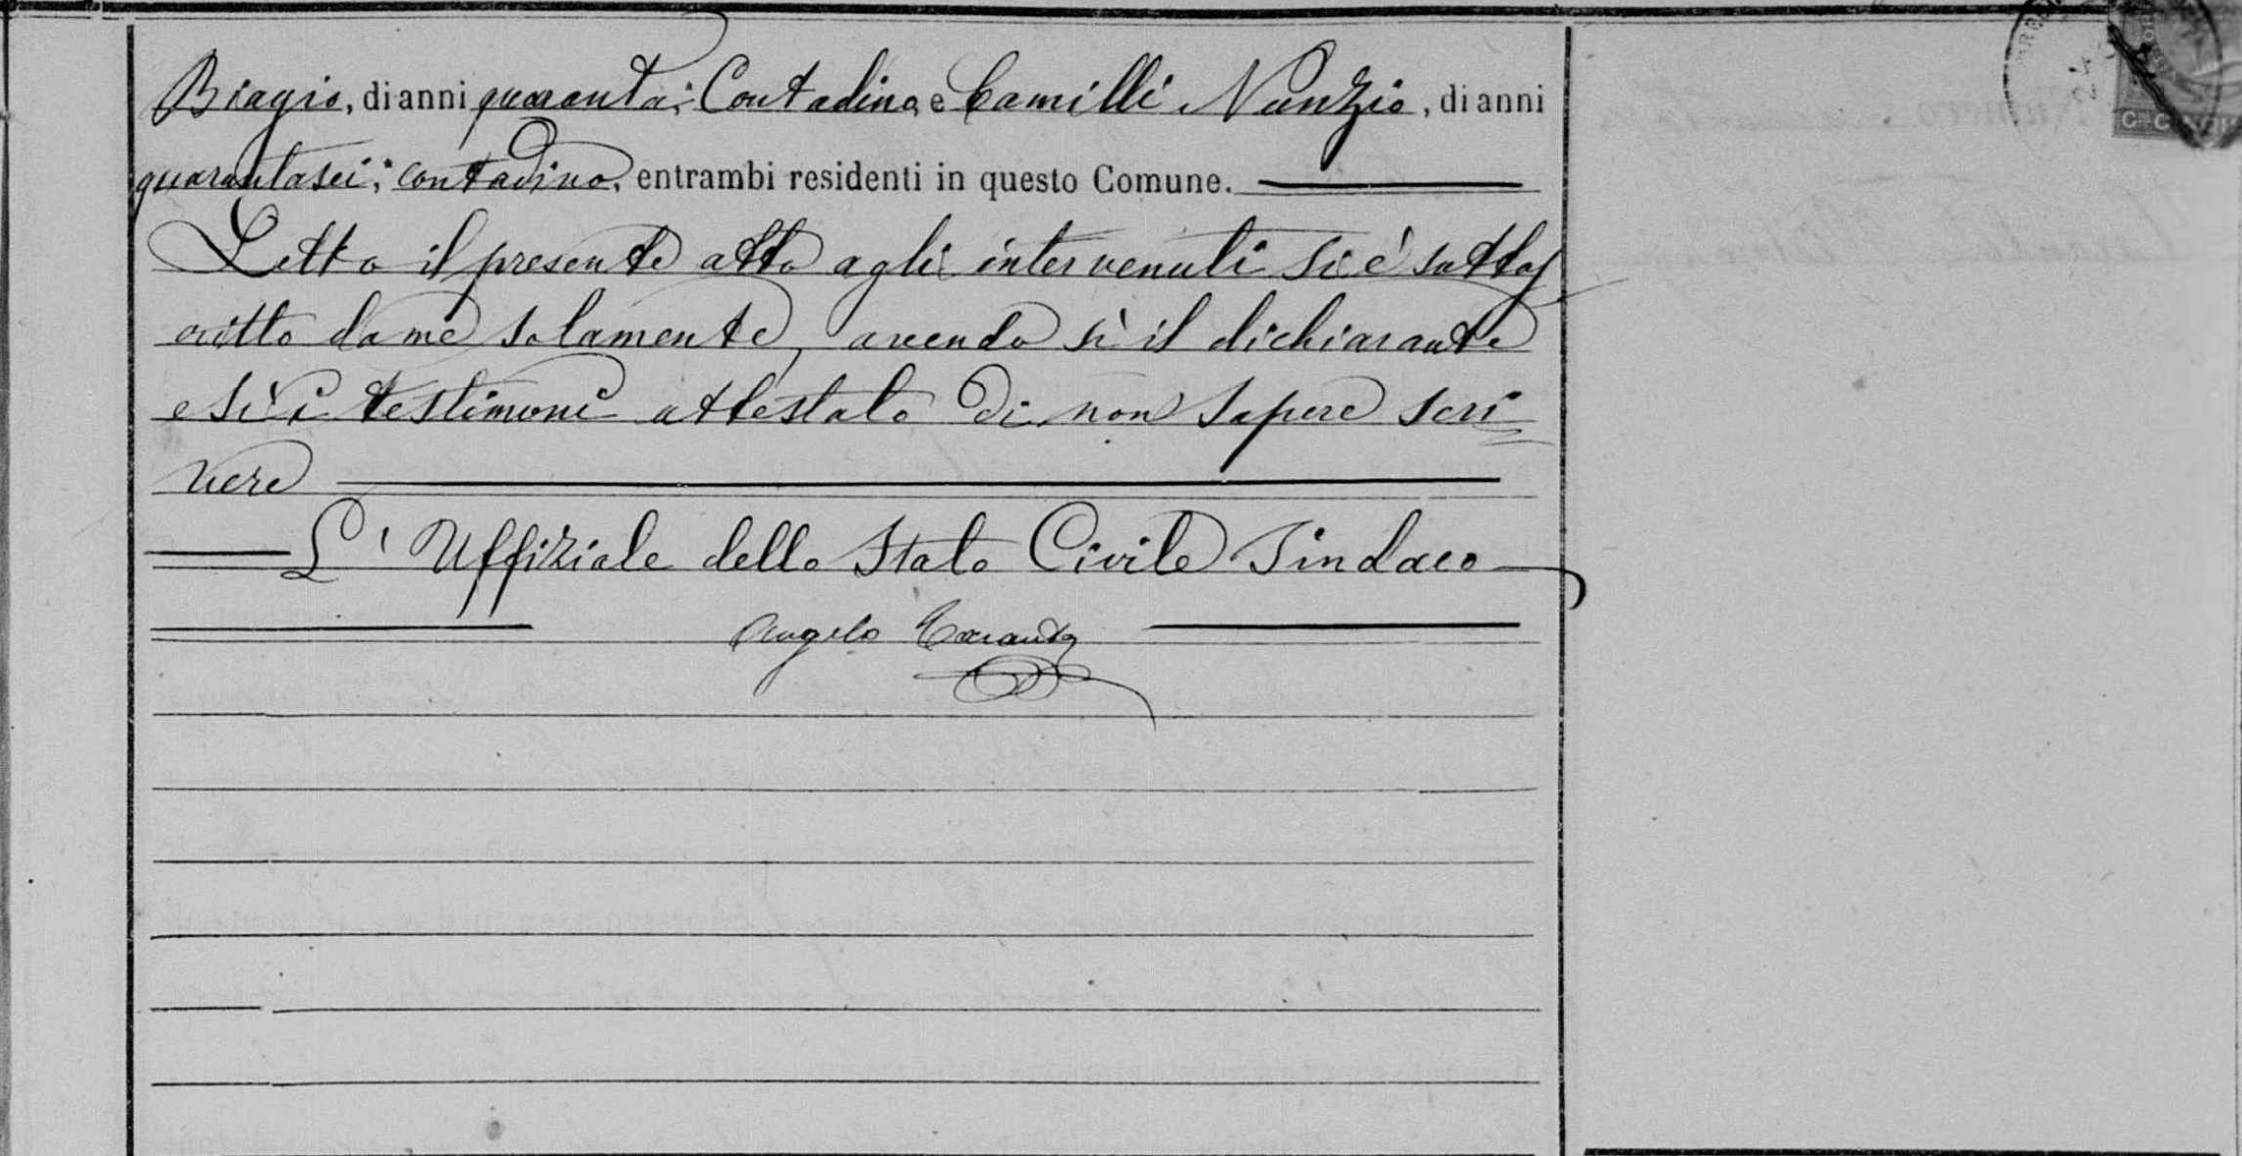 Biagio, di anni quaranta; Contadino, e Camilli Nunzio, di anni
quarantasei; contadino, entrambi residenti in questo Comune.
Letto il presente atto agli intervenuti si è sottos
critto da me solamente, avendo sì il dichiarante
e sì i testimoni attestato di non sapere scri
vere
L' Uffiziale dello Stato Civile Sindaco
Angelo